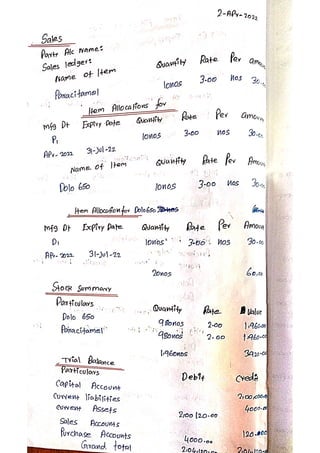 2-APr-2022
Sales
Party A/c name:
Sales ledger:
Name of Item Quantity Rate Per amou
Paracitamol 10nos 3-00 nos 30.0
Item Allocations for
Mfg Dt Expiry Date Quantity Rate Per amoun
P1 10nos 3-00 nos 30.0
APr-2022 31-Jul-22
Name of Item Quantity Rate Per Amou
Dolo 650 10nos 3-00 nos 30.0
Item Allocation for Dolo650
Mfg Dt Expiry Date Quantity Rate Per Amoun
D1 10nos 3-00 nos 30.00
APr-2022 31-Jul-22
20nos 60.00
Stock Summary
Particulars Quantity Rate Value
Dolo 650 980nos 2-00 1960.00
Paracitamol 980nos 2.00 1960.00
1960nos 3920.00
Trial Balance
Particulars Debit Credit
Capital Account 2,00,000.0
Current liabilities 4000.00
Current Assets 2,00,120.00
Sales Accounts 120.00
Purchase Accounts 4000.00
Grand total 2,04,120.00 2,04,120